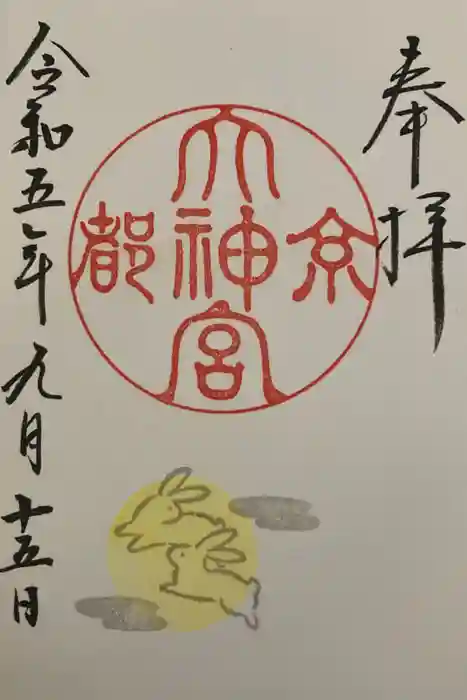 奉拝
京都
六神宮
令和五年九月十五日